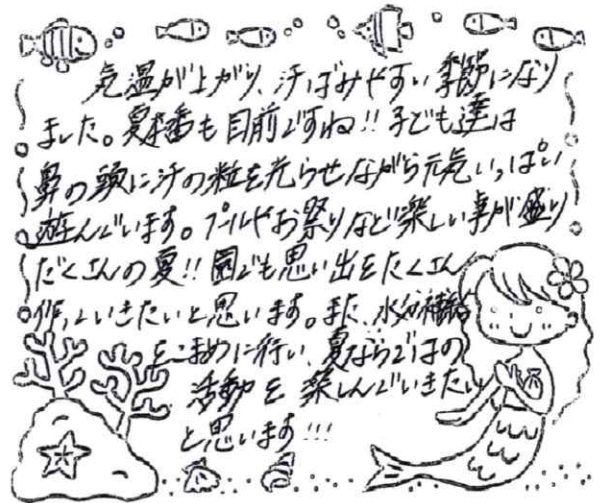 気温が上がり、汗ばみやすい季節になり
ました。夏本番も目前ですね!!子ども達は
鼻の頭に汗の粒を光らせながら元気いっぱい
遊んでいます。プールやお祭りなど楽しい事が盛り
だくさんの夏!!園でも思い出をたくさん
作っていきたいと思います。また、水分補給
をこまめに行い、夏ならではの
活動を楽しんでいきたい
と思います!!!